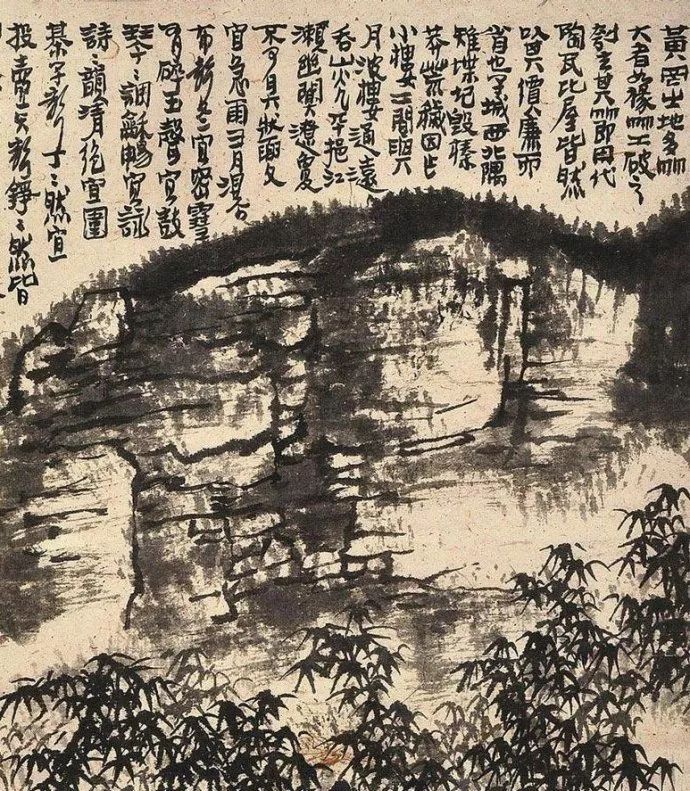 黃岡之地多竹
大者如椽竹工破之
刳去其節用代
陶瓦比屋皆然
以其價廉而
省也子城西北隅
雉堞圮毀蓁
莽荒穢因作
小樓二間與
月波樓通遠
吞山光平挹江
瀨幽闃遼夐
不可具狀夏
宜急雨有瀑布
布聲冬宜密雪
有碎玉聲宜鼓
琴〻調龢暢宜詠
詩〻韻清絕宜圍
棊子聲丁〻然宜
投壺矢聲錚〻然皆